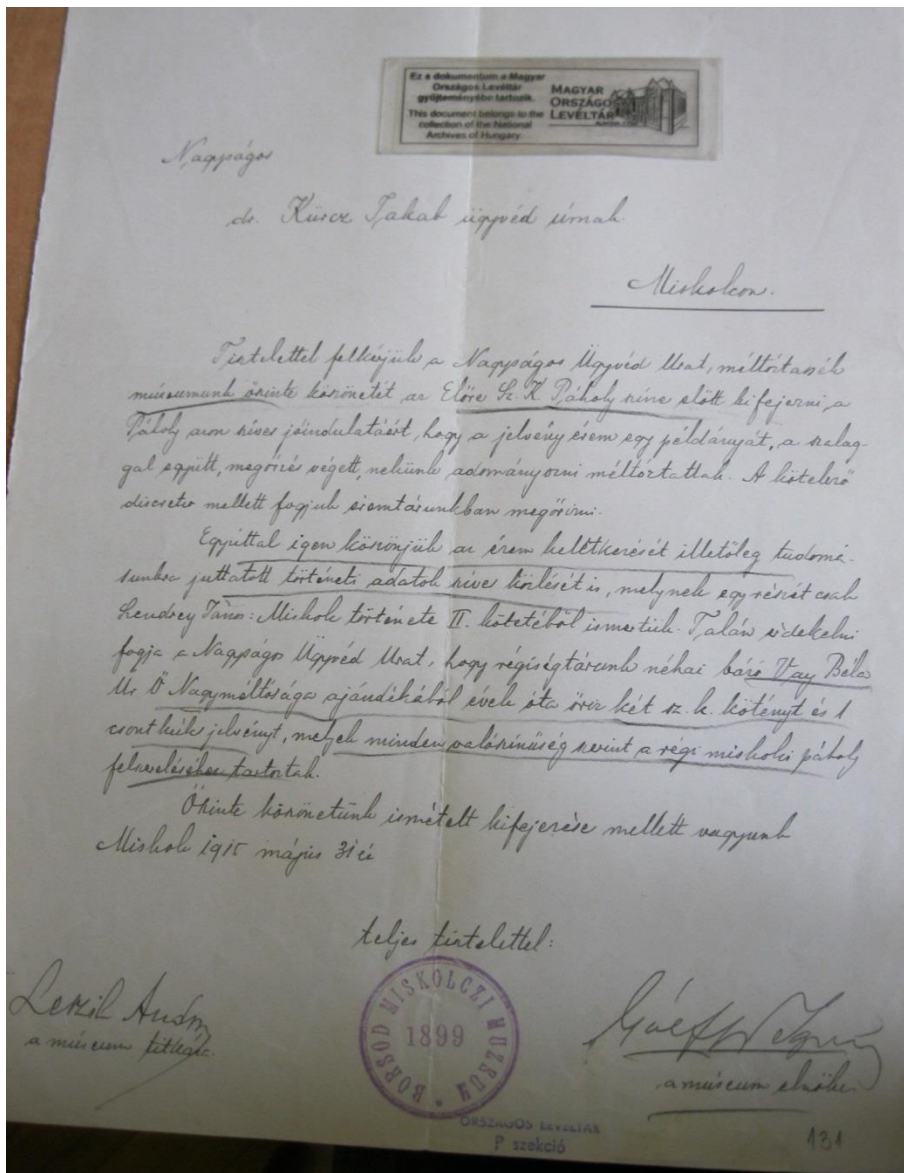 Ez a dokumentum a Magyar
Országos Levéltár
gyűjteményébe tartozik.
This document belongs to the
collection of the National
Archives of Hungary.
MAGYAR
ORSZÁGOS
LEVÉLTÁR
Nagyságos
dr. Kürcz Jakab ügyvéd úrnak
Miskolczon.
Tisztelettel felkérjük a Nagyságos Ügyvéd Urat, méltóztassék
múzeumunk őszinte köszönetét az Előre Sz. K. Páholy színe előtt kifejezni, a
Páholy azon szíves jóindulatáért, hogy a jelvény érem egy példányát, a szalag-
gal együtt, megőrzés végett, nekünk adományozni méltóztattak. A kötelező
discretio mellett fogjuk éremtárunkban megőrizni.
Egyúttal igen köszönjük az érem keletkezését illetőleg tudomá-
sunkra juttatott történeti adatok szíves közlését is, melynek egy részét csak
Szendrey János: Miskolc története II. kötetéből ismertük. Talán érdekelni
fogja a Nagyságos Ügyvéd Urat, hogy régiségtárunk néhai báró Vay Béla
Ur Ő Nagyméltósága ajándékából évek óta őriz két sz. k. kötényt és 1
csont jelvényt, melyek minden valószínűség szerint a régi miskolci páholy
felszereléséhez tartoztak.
Őszinte köszönetünk ismételt kifejezése mellett vagyunk
Miskolc 1915 május 31 én
teljes tisztelettel:
a múzeum titkára.
BORSOD MISKOLCZI MUZEUM
1899
Gálffy Ignác
a múzeum elnöke
ORSZÁGOS LEVÉLTÁR
P szekció
131